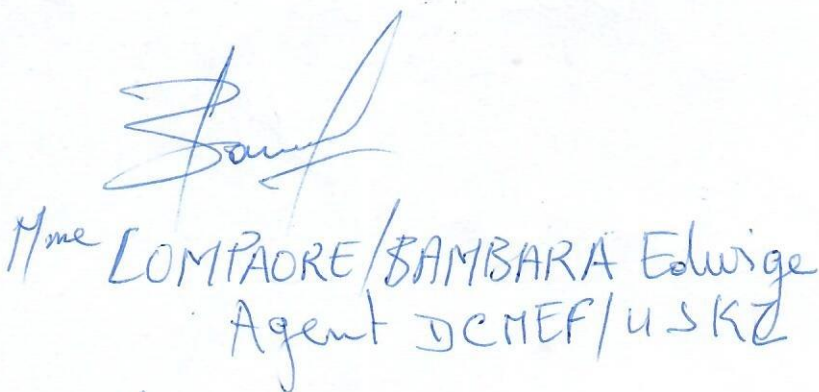 Mme COMPAORE/BAMBARA Edwige
Agent DCMEF/USKZ